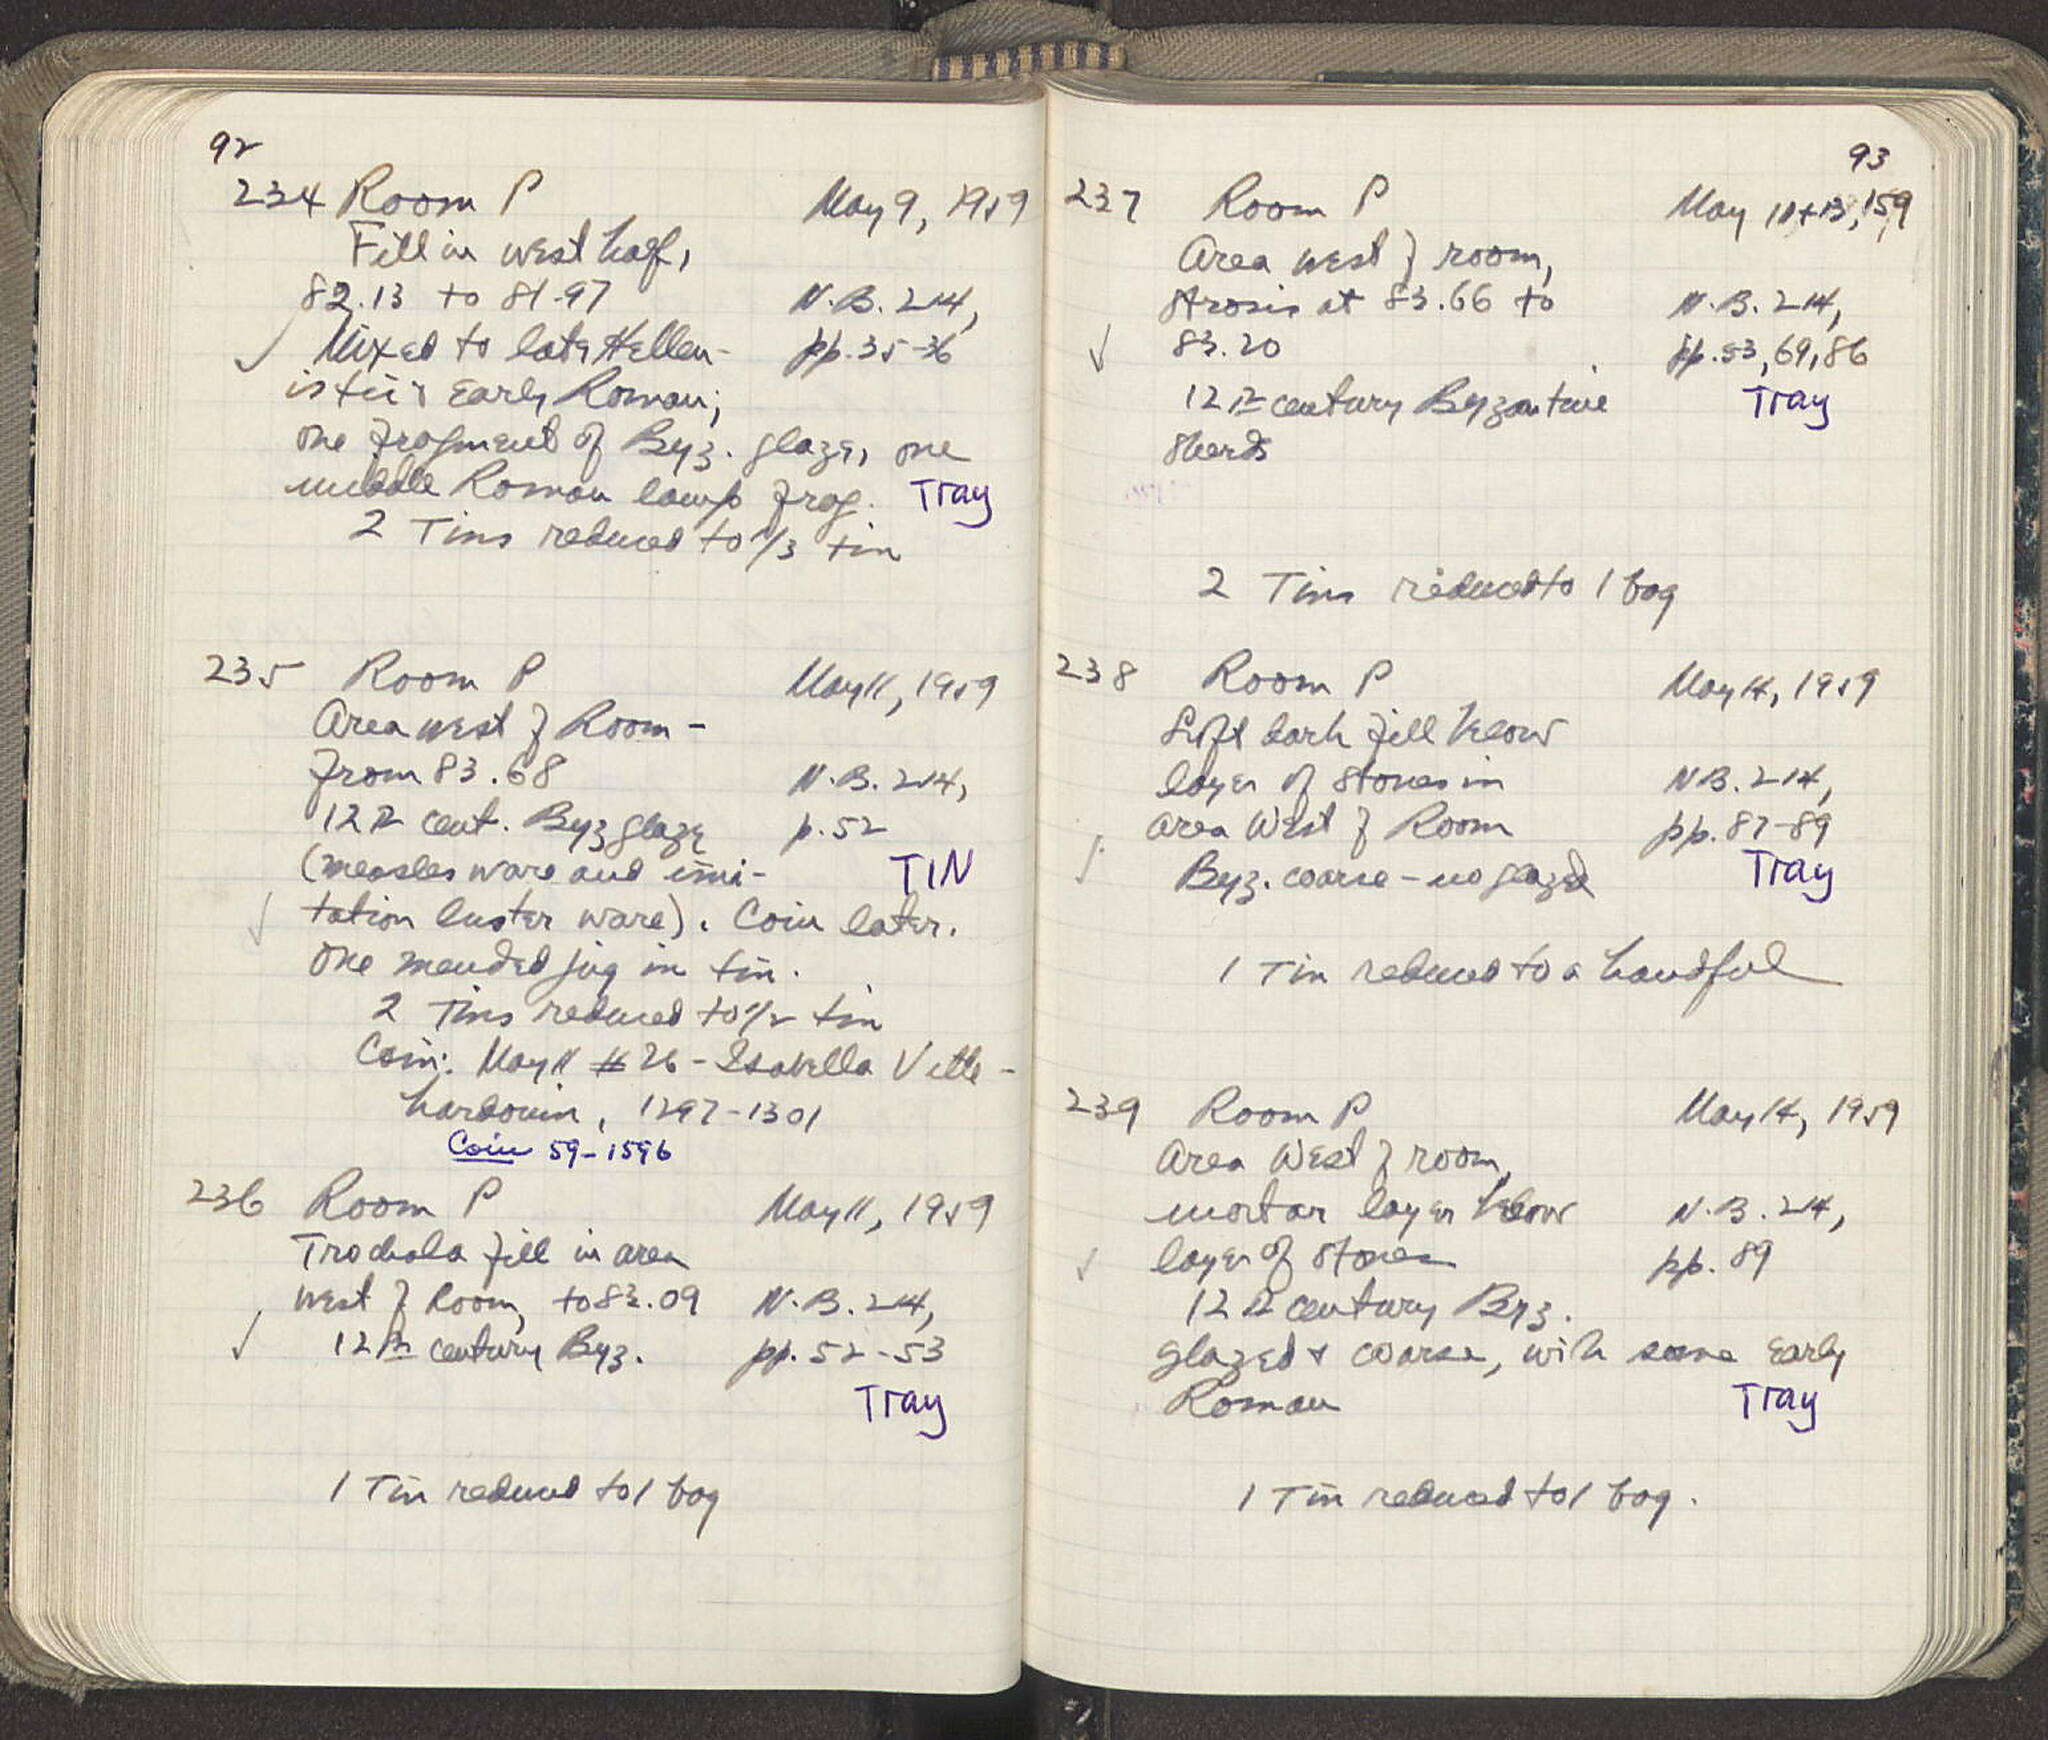 92
234 Room P May 9, 1959
Fill in west half,
82.13 to 81.97 N.B. 214,
Mixed to late Hellen- pp. 35-36
istic & Early Roman;
one fragment of Byz. glaze, one
middle Roman lamp frag. Tray
2 Tins reduced to 1/3 tin
235 Room P May 11, 1959
Area west of Room -
from 83.68 N.B. 214,
12th cent. Byz glaze p. 52
(measles ware and imi- TIN
tation luster ware). Coin later.
One mended jug in tin.
2 Tins reduced to 1/2 tin
Coin: May 11 #26 - Isabella Ville-
hardouin, 1297-1301
Coin 59-1596
236 Room P May 11, 1959
Trochala fill in area
west of Room, to 83.09 N.B. 214,
12th century Byz. pp. 52-53
Tray
1 Tin reduced to 1 bag
93
237 Room P May 11+13, 159
Area west of room,
strosis at 83.66 to N.B. 214,
83.20 pp. 53, 69, 86
12th century Byzantine Tray
sherds
2 Tins reduced to 1 bag
238 Room P May 14, 1959
Soft dark fill below
layer of stones in N.B. 214,
Area West of Room pp. 87-89
Byz. coarse - no glazed Tray
1 Tin reduced to a handful
239 Room P May 14, 1959
Area West of room,
mortar layer below N.B. 214,
layer of stones pp. 89
12th century Byz.
glazed & coarse, with some Early
Roman Tray
1 Tin reduced to 1 bag.